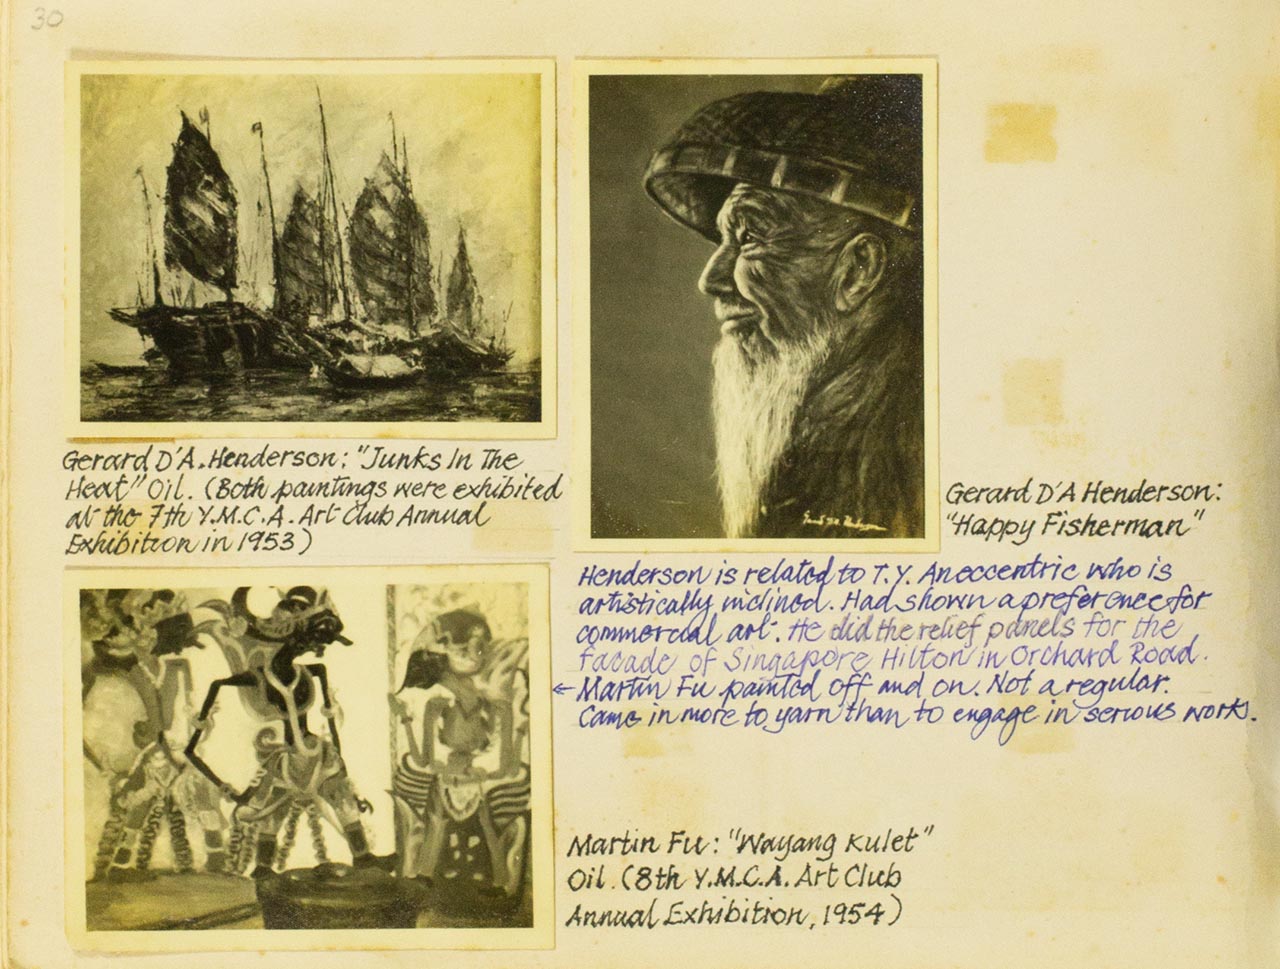 30
Gerard D'A. Henderson: "Junks In The
Heat" Oil. (Both paintings were exhibited
at the 7th Y.M.C.A. Art Club Annual
Exhibition in 1953)
Gerard D'A Henderson:
"Happy Fisherman"
Henderson is related to T.Y. An eccentric who is
artistically inclined. Had shown a preference for
commercial art. He did the relief panels for the
facade of Singapore Hilton in Orchard Road.
← Martin Fu painted off and on. Not a regular.
Came in more to yarn than to engage in serious works.
Martin Fu: "Wayang Kulet"
Oil. (8th Y.M.C.A. Art Club
Annual Exhibition, 1954)